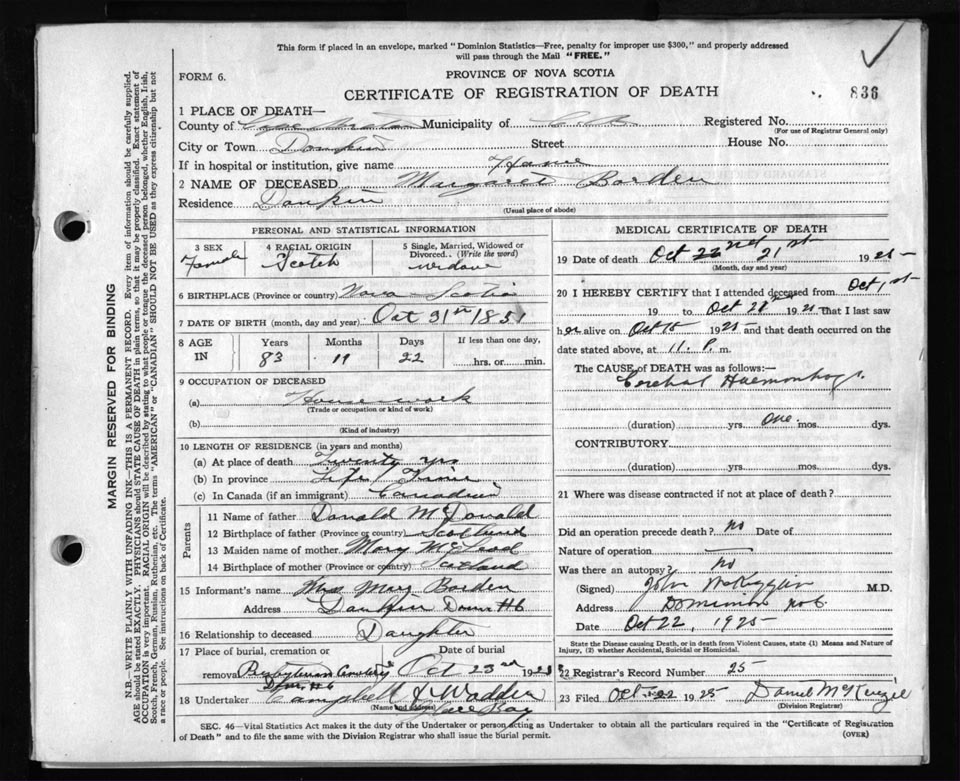 This form if placed in an envelope, marked "Dominion Statistics—Free, penalty for improper use $300," and properly addressed
will pass through the Mail "FREE."
FORM 6.
PROVINCE OF NOVA SCOTIA
CERTIFICATE OF REGISTRATION OF DEATH
836
1 PLACE OF DEATH—
County of Cape Breton Municipality of C. B. Registered No.
(For use of Registrar General only)
City or Town Donkin Street House No.
If in hospital or institution, give name Home
2 NAME OF DECEASED Margaret Borden
Residence Donkin
(Usual place of abode)
PERSONAL AND STATISTICAL INFORMATION
3 SEX 4 RACIAL ORIGIN 5 Single, Married, Widowed or Divorced.. (Write the word)
Female Scotch widow
6 BIRTHPLACE (Province or country) Nova Scotia
7 DATE OF BIRTH (month, day and year) Oct 31st 1851
8 AGE IN Years Months Days If less than one day,
83 11 22 hrs. or min.
9 OCCUPATION OF DECEASED
(a) Housework
(Trade or occupation or kind of work)
(b)
(Kind of industry)
10 LENGTH OF RESIDENCE (in years and months)
(a) At place of death Twenty yrs
(b) In province Life Time
(c) In Canada (if an immigrant) Canadian
Parents
11 Name of father Donald McDonald
12 Birthplace of father (Province or country) Scotland
13 Maiden name of mother Mary McLeod
14 Birthplace of mother (Province or country) Scotland
15 Informant's name Mrs Mary Borden
Address Donkin Dom #6
16 Relationship to deceased Daughter
17 Place of burial, cremation or removal Date of burial
Presbyterian Cemetery Oct 23rd 1925
Dom #6
18 Undertaker Campbell & Wadden
(Name and address) Glace Bay
MEDICAL CERTIFICATE OF DEATH
19 Date of death Oct 22nd 21st 1925
(Month, day and year)
20 I HEREBY CERTIFY that I attended deceased from Oct 1st
19 to Oct 1925 that I last saw
her alive on Oct 15 1925 and that death occurred on
date stated above, at 11. P. m.
The CAUSE OF DEATH was as follows:—
Cerebral Haemorrhage
(duration) yrs. one mos. dys.
CONTRIBUTORY.
(duration) yrs. mos. dys.
21 Where was disease contracted if not at place of death?
Did an operation precede death? no Date of
Nature of operation
Was there an autopsy? no
(Signed) John McKiggan M.D.
Address Dominion No 6
Date Oct 22, 1925
State the Disease causing Death, or in death from Violent Causes, state (1) Means and Nature of
Injury, (2) whether Accidental, Suicidal or Homicidal.
22 Registrar's Record Number 25
23 Filed Oct 22 1925 Daniel McKenzie
(Division Registrar)
SEC. 46—Vital Statistics Act makes it the duty of the Undertaker or person acting as Undertaker to obtain all the particulars required in the "Certificate of Registration
of Death" and to file the same with the Division Registrar who shall issue the burial permit.
(OVER)
MARGIN RESERVED FOR BINDING
N.B.—WRITE PLAINLY WITH UNFADING INK—THIS IS A PERMANENT RECORD. Every item of information should be carefully supplied.
AGE should be stated EXACTLY. PHYSICIANS should STATE CAUSE OF DEATH in plain terms, so that it may be properly classified. Exact statement of
OCCUPATION is very important. RACIAL ORIGIN will be described by stating to what people or tongue the deceased person belonged, whether English, Irish,
Scotch, French, German, Russian, Ruthenian, etc. The terms "AMERICAN" or "CANADIAN" SHOULD NOT BE USED as they express citizenship but not
a race or people. See instructions on back of Certificate.